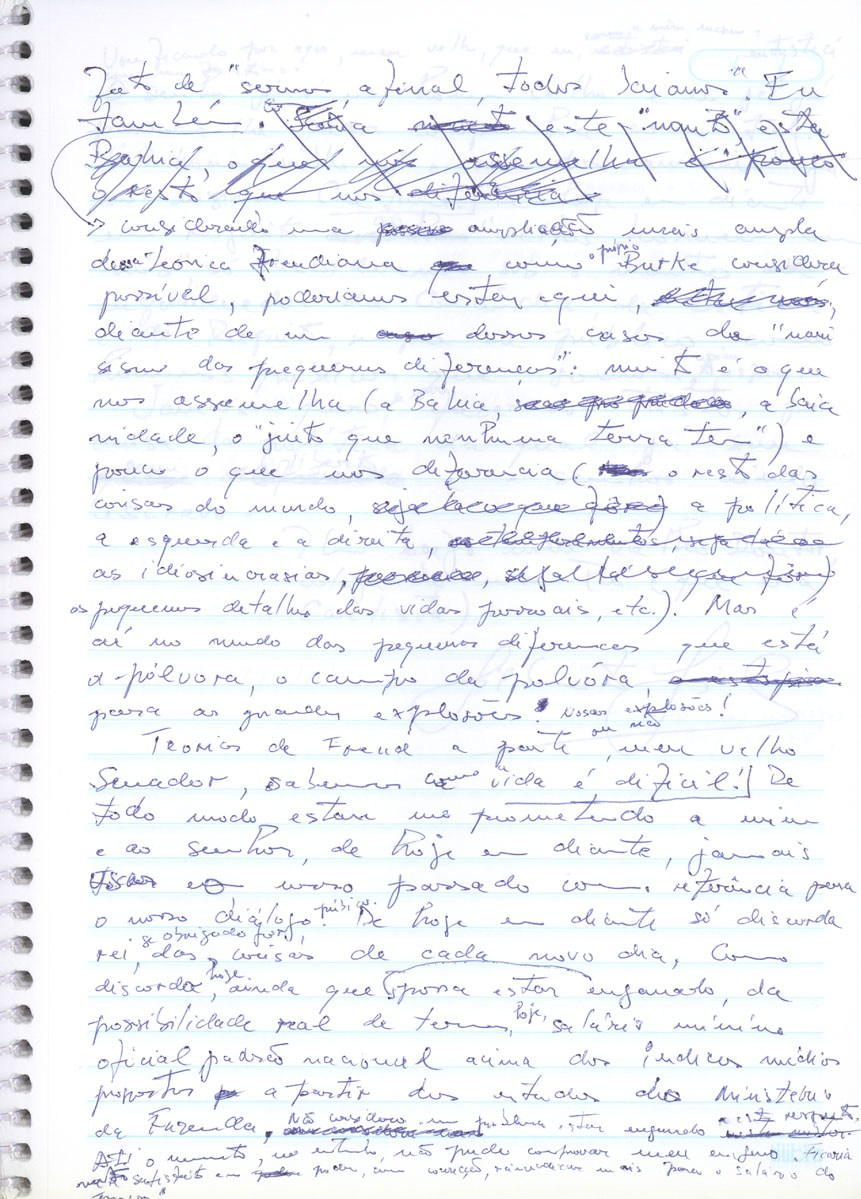 fato de "sermos afinal, todos baianos". Eu
também.
Bahia, o que nos assemelha é pouco
o resto que nos diferencia
considerando uma ampliação mais ampla
dessa teórica Freudiana como o próprio Burke considera
possível, poderíamos estar aqui,
diante de um desses casos do "narci
sismo das pequenas diferenças": muito é o que
nos assemelha (a Bahia, a baia
nidade, o "jeito que nenhuma terra tem") e
pouco o que nos diferencia (o resto das
coisas do mundo, a política,
a esquerda e a direita,
as idiosincrasias,
os pequenos detalhes das vidas pessoais, etc.). Mas é
aí no mundo das pequenas diferenças que está
a pólvora, o campo da pólvora,
para as grandes explosões! Nossas explosões!
Teorias de Freud a parte ou não, meu velho
Senador, sabemos como a vida é difícil! De
todo modo estou me prometendo a mim
e ao senhor, de hoje em diante, jamais
o nosso passado como referência para
o nosso diálogo público. De hoje em diante só discorda
rei, se obrigado for, das coisas de cada novo dia, como
discordo, hoje, ainda que possa estar enganado, da
possibilidade real de termos, hoje, salário mínimo
oficial padrão nacional acima dos índices médios
propostos a partir dos estudos do Ministério
da Fazenda. Não considero um problema estar enganado a este respeito.
Até o momento, no entanto, não pude comprovar meu engano. Ficaria
satisfeito em poder, com convicção, reivindicar mais para o salário do